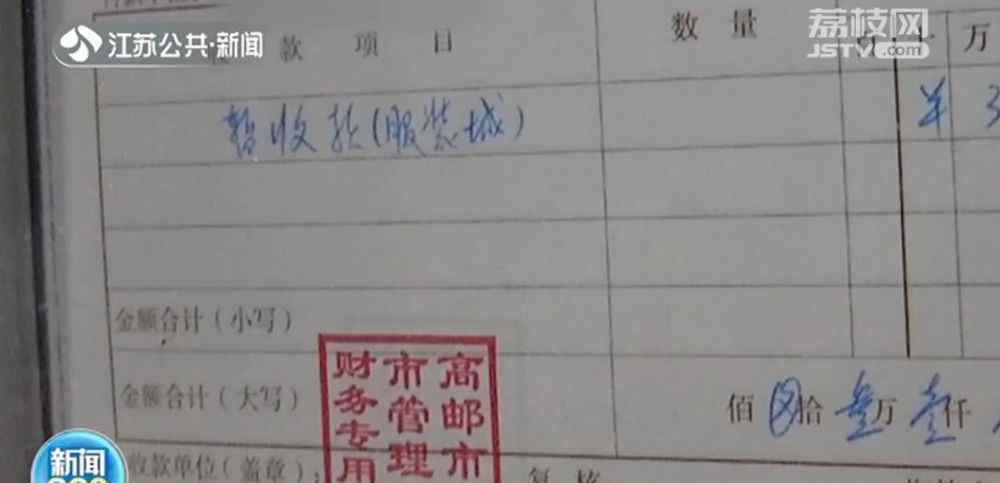 江苏公共·新闻
荔枝网
JSTV.com
款项目
数量
万
暂收款(服装城)
金额合计(小写)
金额合计(大写)
佰 拾叁万壹仟
高邮市
市管理
财务专用
新闻
收款单位(盖章):
复核